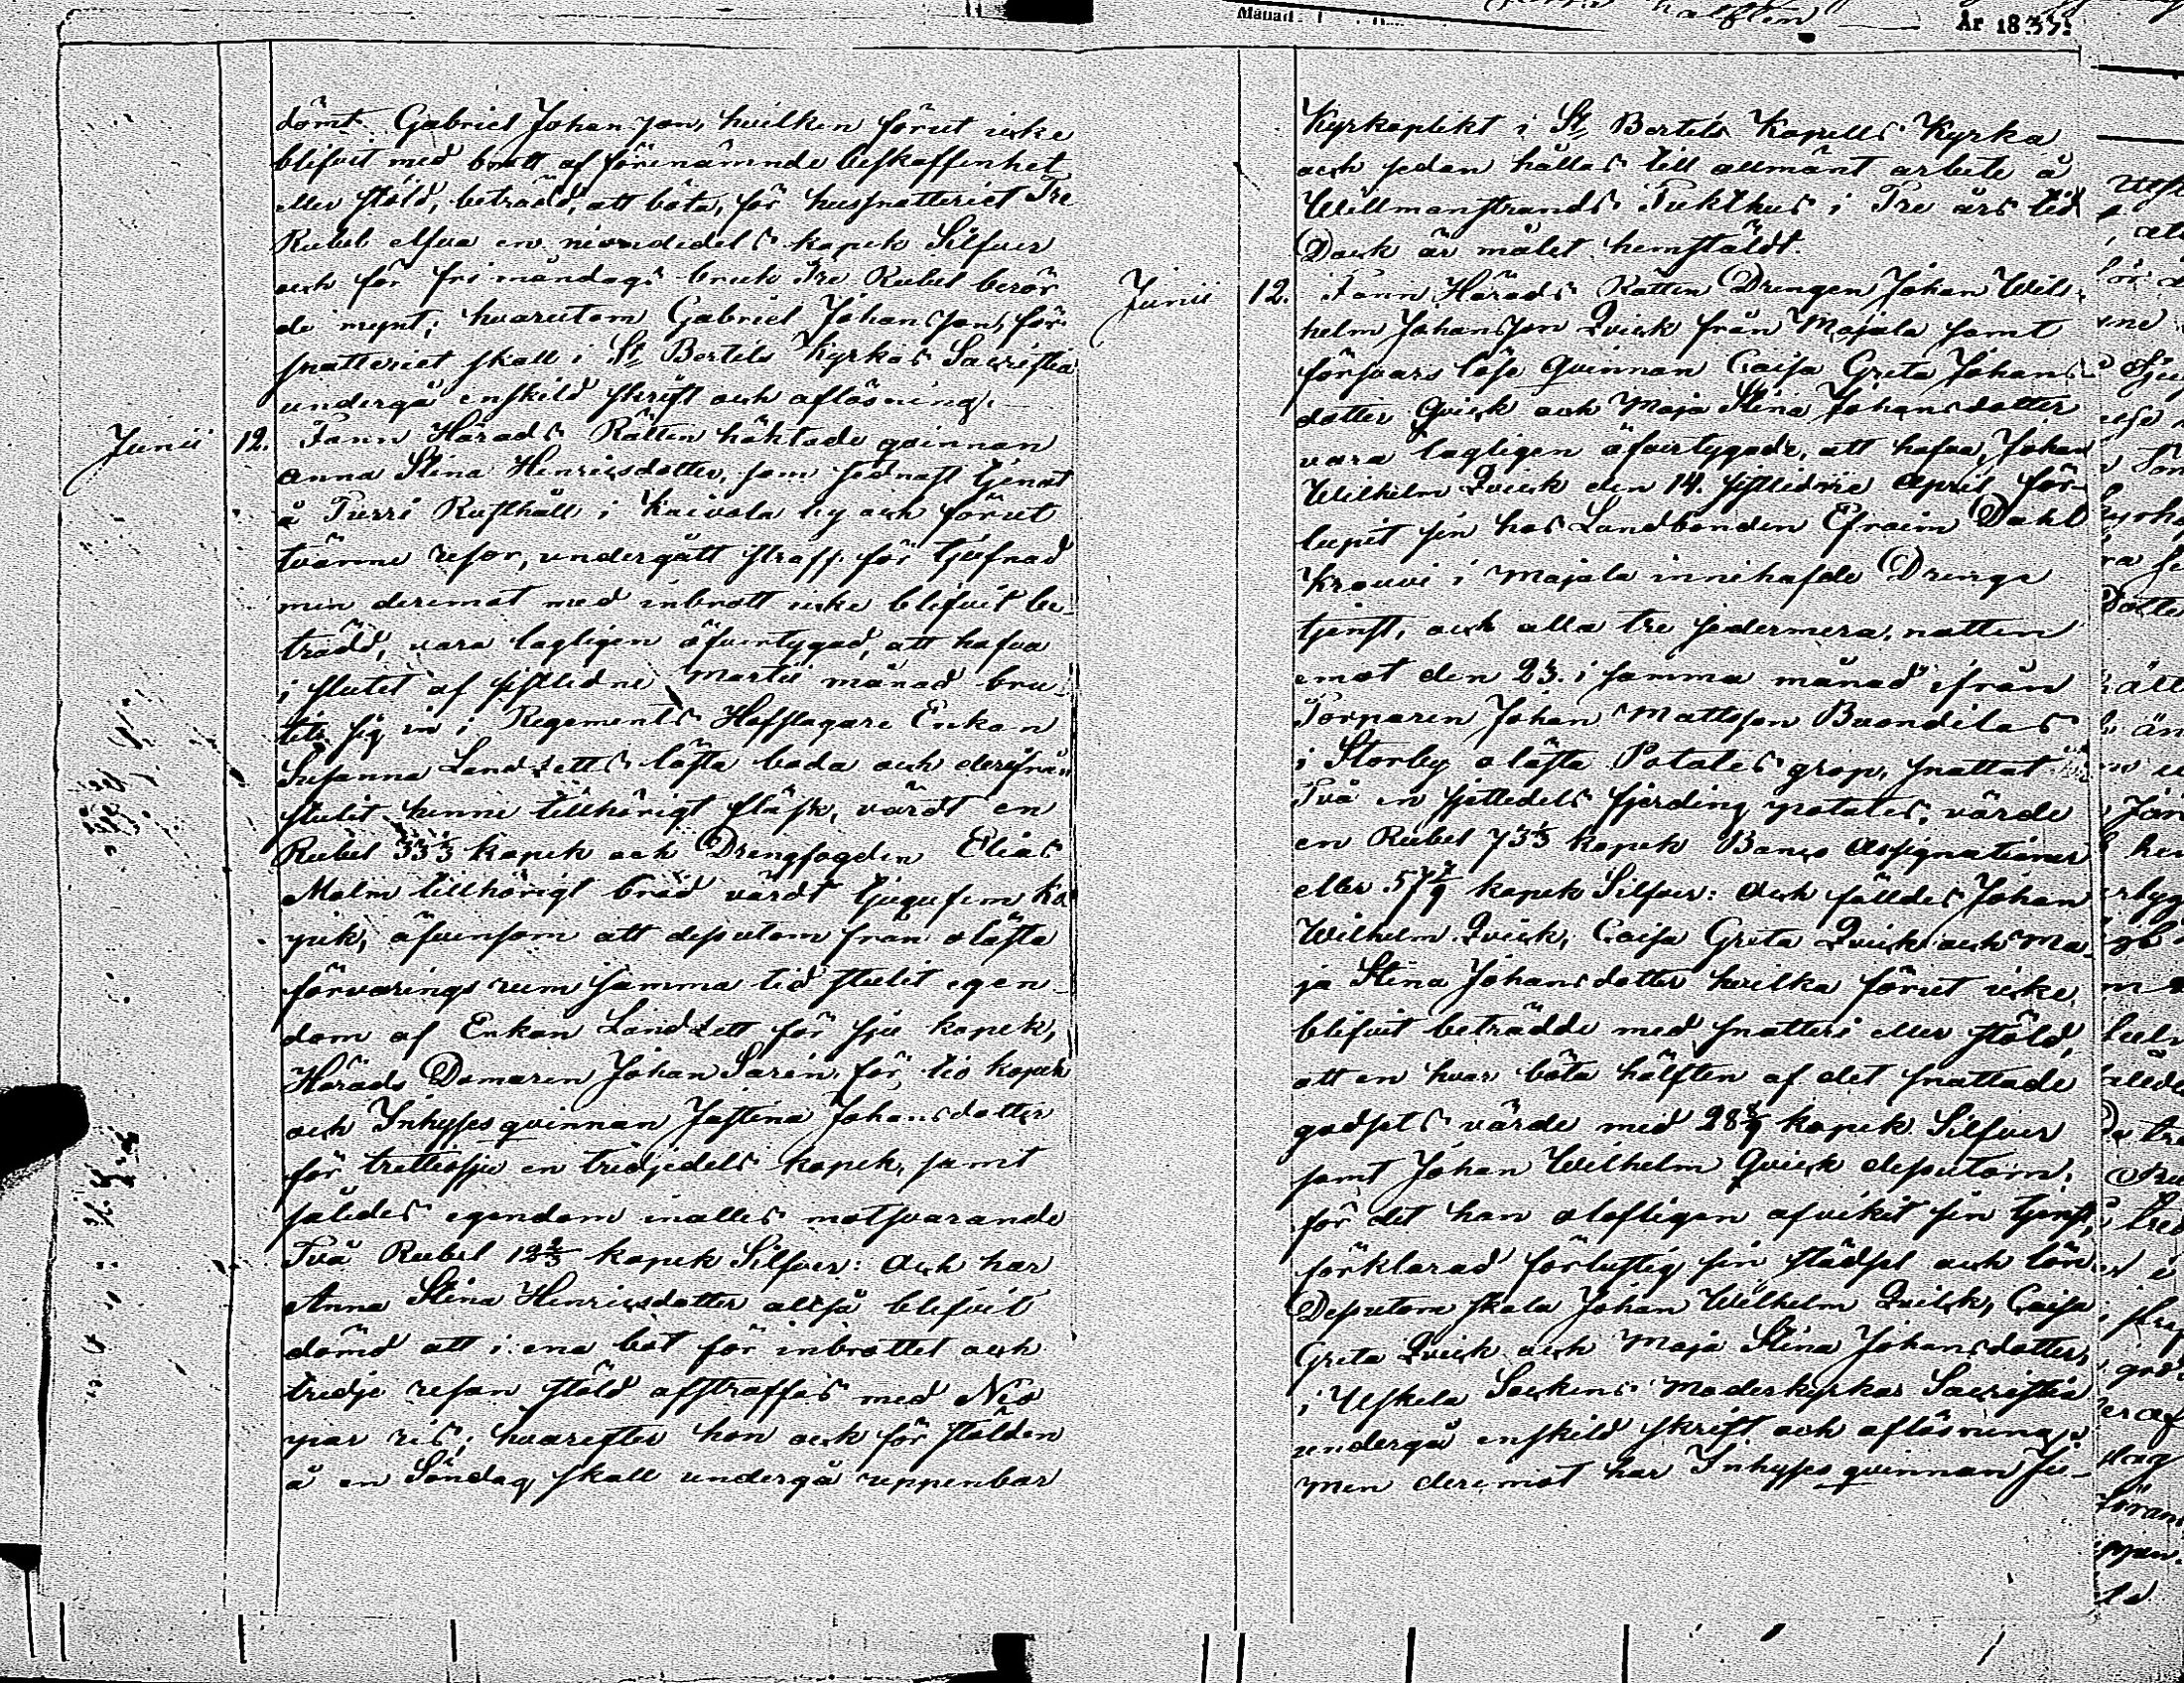 År 1837.
dömt Gabriel Johansson, hvilken förut icke
blifvit med brott af förenämnde beskaffenhet
eller stöld, beträdd, att böta, för hussnatteriet Tre
Rubel elfva en niondedels kopek Silfver
och för fri måndags bruk Tre Rubel berör
de mynt; hvarutom Gabriel Johansson, för
snatteriet skall i St Bertils Kyrkas Sacristia
undergå enskild skrift och aflösning.
Junii 12. Fann Härads Rätten häktade qvinnan
Anna Stina Henricsdotter, som sednast tjenat
å Turri Rusthåll i Kaivola by och förut
tvänne resor, undergått straff för tjufnad
men deremot med inbrott icke blifvit be-
trädd, vara lagligen öfvertygad, att hafva
i slutet af sistledne Martii månad bru-
tit sig in i Regements Hofslagare Enkan
Susanna Landzetts låsta boda och derifrån
stulit henne tillhörigt fläsk, värdt en
Rubel 33 1/3 kopek och Drengfogden Elias
Malm tillhörigt bröd värdt tjugufem ko
pek, äfvensom att dessutom från olåsta
förvarings rum samma tid stulit egen-
dom af Enkan Landzett för sju kopek,
Härads Domaren Johan Sarén för tio kopek
och Inhyses qvinnan Justina Johansdotter
för trettiosju en tredjedels kopek, samt
således egendom inalles motsvarande
Två Rubel 12 2/3 kopek Silfver: Och har
Anna Stina Henricsdotter altså blifvit
dömd att i ena bot för inbrottet och
tredje resan stöld afstraffas med Nio
par ris; hvarefter hon ock för stölden
å en Söndag skall undergå uppenbar
Kyrkoplikt i St Bertils Kapells Kyrka
och sedan hållas till allmänt arbete å
Willmanstrands Tukthus i Tre års tid
Dock är målet hemstäldt.
Junii 12. Fann Härads Rätten Drengen Johan Wil-
helm Johansson Qvick från Majala samt
försvarslösa qvinnan Caisa Greta Johans-
dotter Qvick och Maja Stina Johansdotter
vara lagligen öfvertygade, att hafva, Johan
Wilhelm Qvick den 14. sistledne April för-
lupit sin hos Landbonden Efraim Dahl
Krouvi i Majala innehafde Drenge
tjenst, och alla tre sedermera, natten
emot den 23. i samma månad ifrån
Torparen Johan Mattsson Brondilas
i Storby olåsta Potates grop, snattat
Två en sjettedels fjerding potates, värde
en Rubel 73 1/3 kopek Banco Assignationer
eller 57 7/9 kopek Silfver: Och fälldes Johan
Wilhelm Qvick, Caisa Greta Qvick och Ma-
ja Stina Johansdotter hvilka förut icke
blifvit beträdde med snatteri eller stöld,
att en hvar böta hälften af det snattade
godsets värde med 28 8/9 kopek Silfver
samt Johan Wilhelm Qvick dessutom,
för det han olofligen afvikit sin tjenst,
förklarad förlustig sin städsel och lön
Dessutom skola Johan Wilhelm Qvick, Caisa
Greta Qvick och Maja Stina Johansdotter,
i Uskela Sockens Moderkyrkas Sacristia
undergå enskild skrift och aflösning,
men deremot har Inhyses qvinnan Ju-